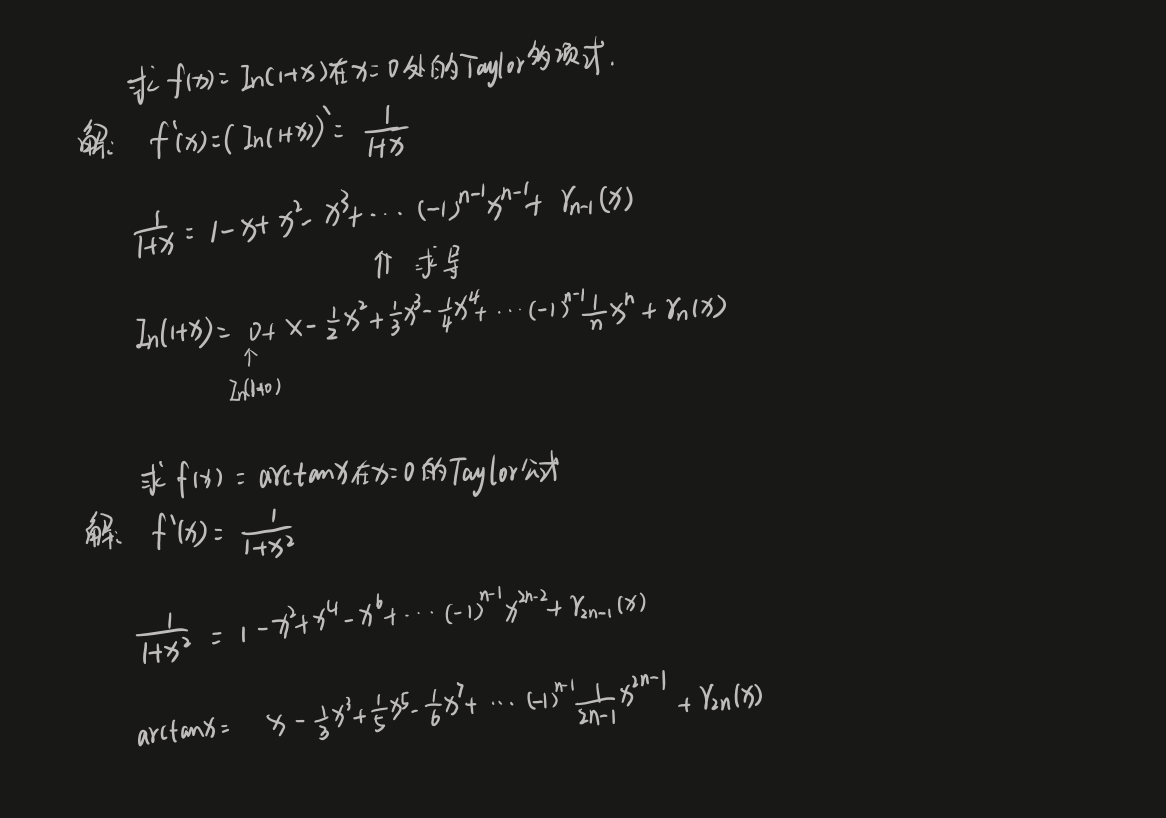 求 f(x) = ln(1+x)在x=0处的Taylor多项式.
解: f'(x)=(ln(1+x))' = 1/(1+x)
1/(1+x) = 1-x+x^2-x^3+⋯(-1)^{n-1}x^{n-1}+γ_{n-1}(x)
⇑ 求导
ln(1+x)= 0+x-1/2x^2+1/3x^3-1/4x^4+⋯(-1)^{n-1}1/n x^n+γ_n(x)
↑
ln(1+0)
求 f(x) = arctanx在x=0的Taylor公式
解: f'(x) = 1/(1+x^2)
1/(1+x^2) = 1-x^2+x^4-x^6+⋯(-1)^{n-1}x^{2n-2}+γ_{2n-1}(x)
arctanx= x-1/3x^3+1/5x^5-1/6x^7+⋯(-1)^{n-1}1/(2n-1)x^{2n-1}+γ_{2n}(x)